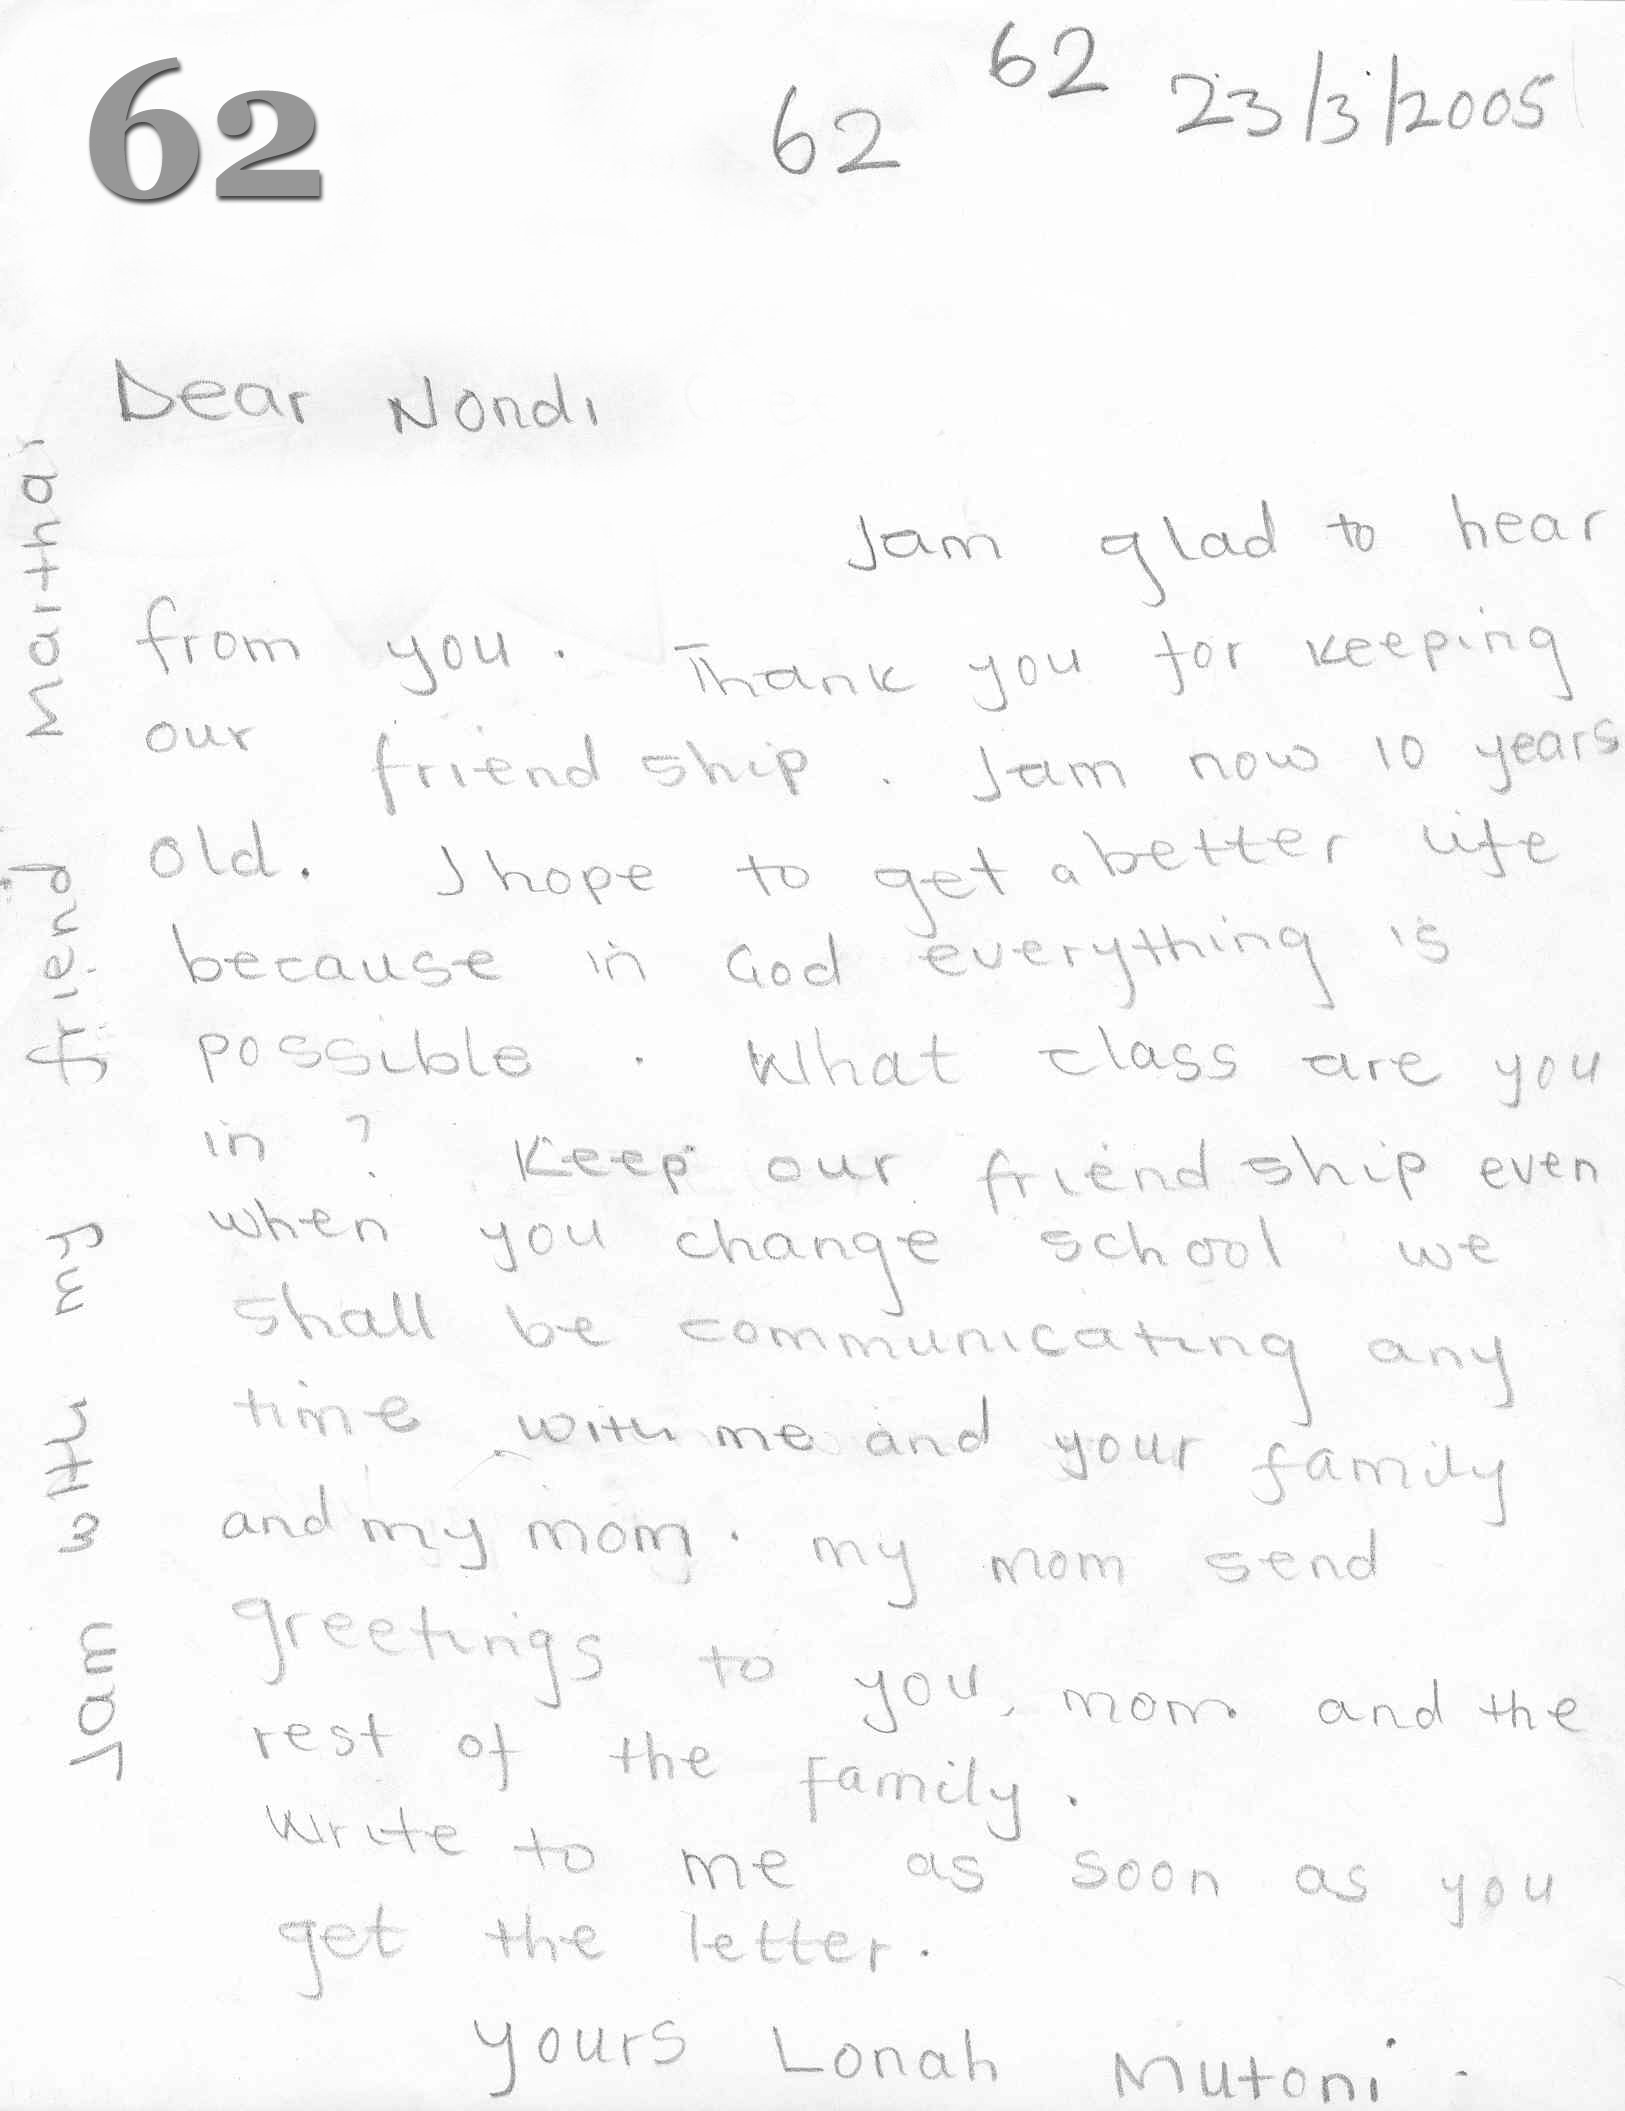 62
62
62
23/3/2005
Dear Nondi
Iam glad to hear
from you. Thank you for keeping
our friend ship. Iam now 10 years
old. I hope to get a better life
because in God everything is
possible. What class are you
in? Keep our friend ship even
when you change school we
shall be communicating any
time with me and your family
and my mom. my mom send
greetings to you, mom and the
rest of the family.
Write to me as soon as you
get the letter.
yours Lonah Mutoni.
Iam with my friend Martha